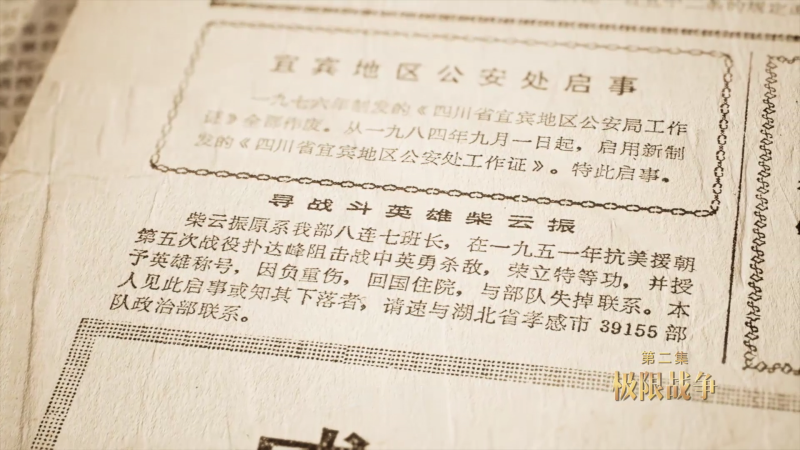 宜宾地区公安处启事
一九七六年制发的《四川省宜宾地区公安局工作
证》全部作废。从一九八四年九月一日起，启用新制
发的《四川省宜宾地区公安处工作证》。特此启事。
寻战斗英雄柴云振
柴云振原系我部八连七班长，在一九五一年抗美援朝
第五次战役扑达峰阻击战中英勇杀敌，荣立特等功，并授
予英雄称号，因负重伤，回国住院，与部队失掉联系。本
人见此启事或知其下落者，请速与湖北省孝感市39155部
队政治部联系。
第二集
极限战争